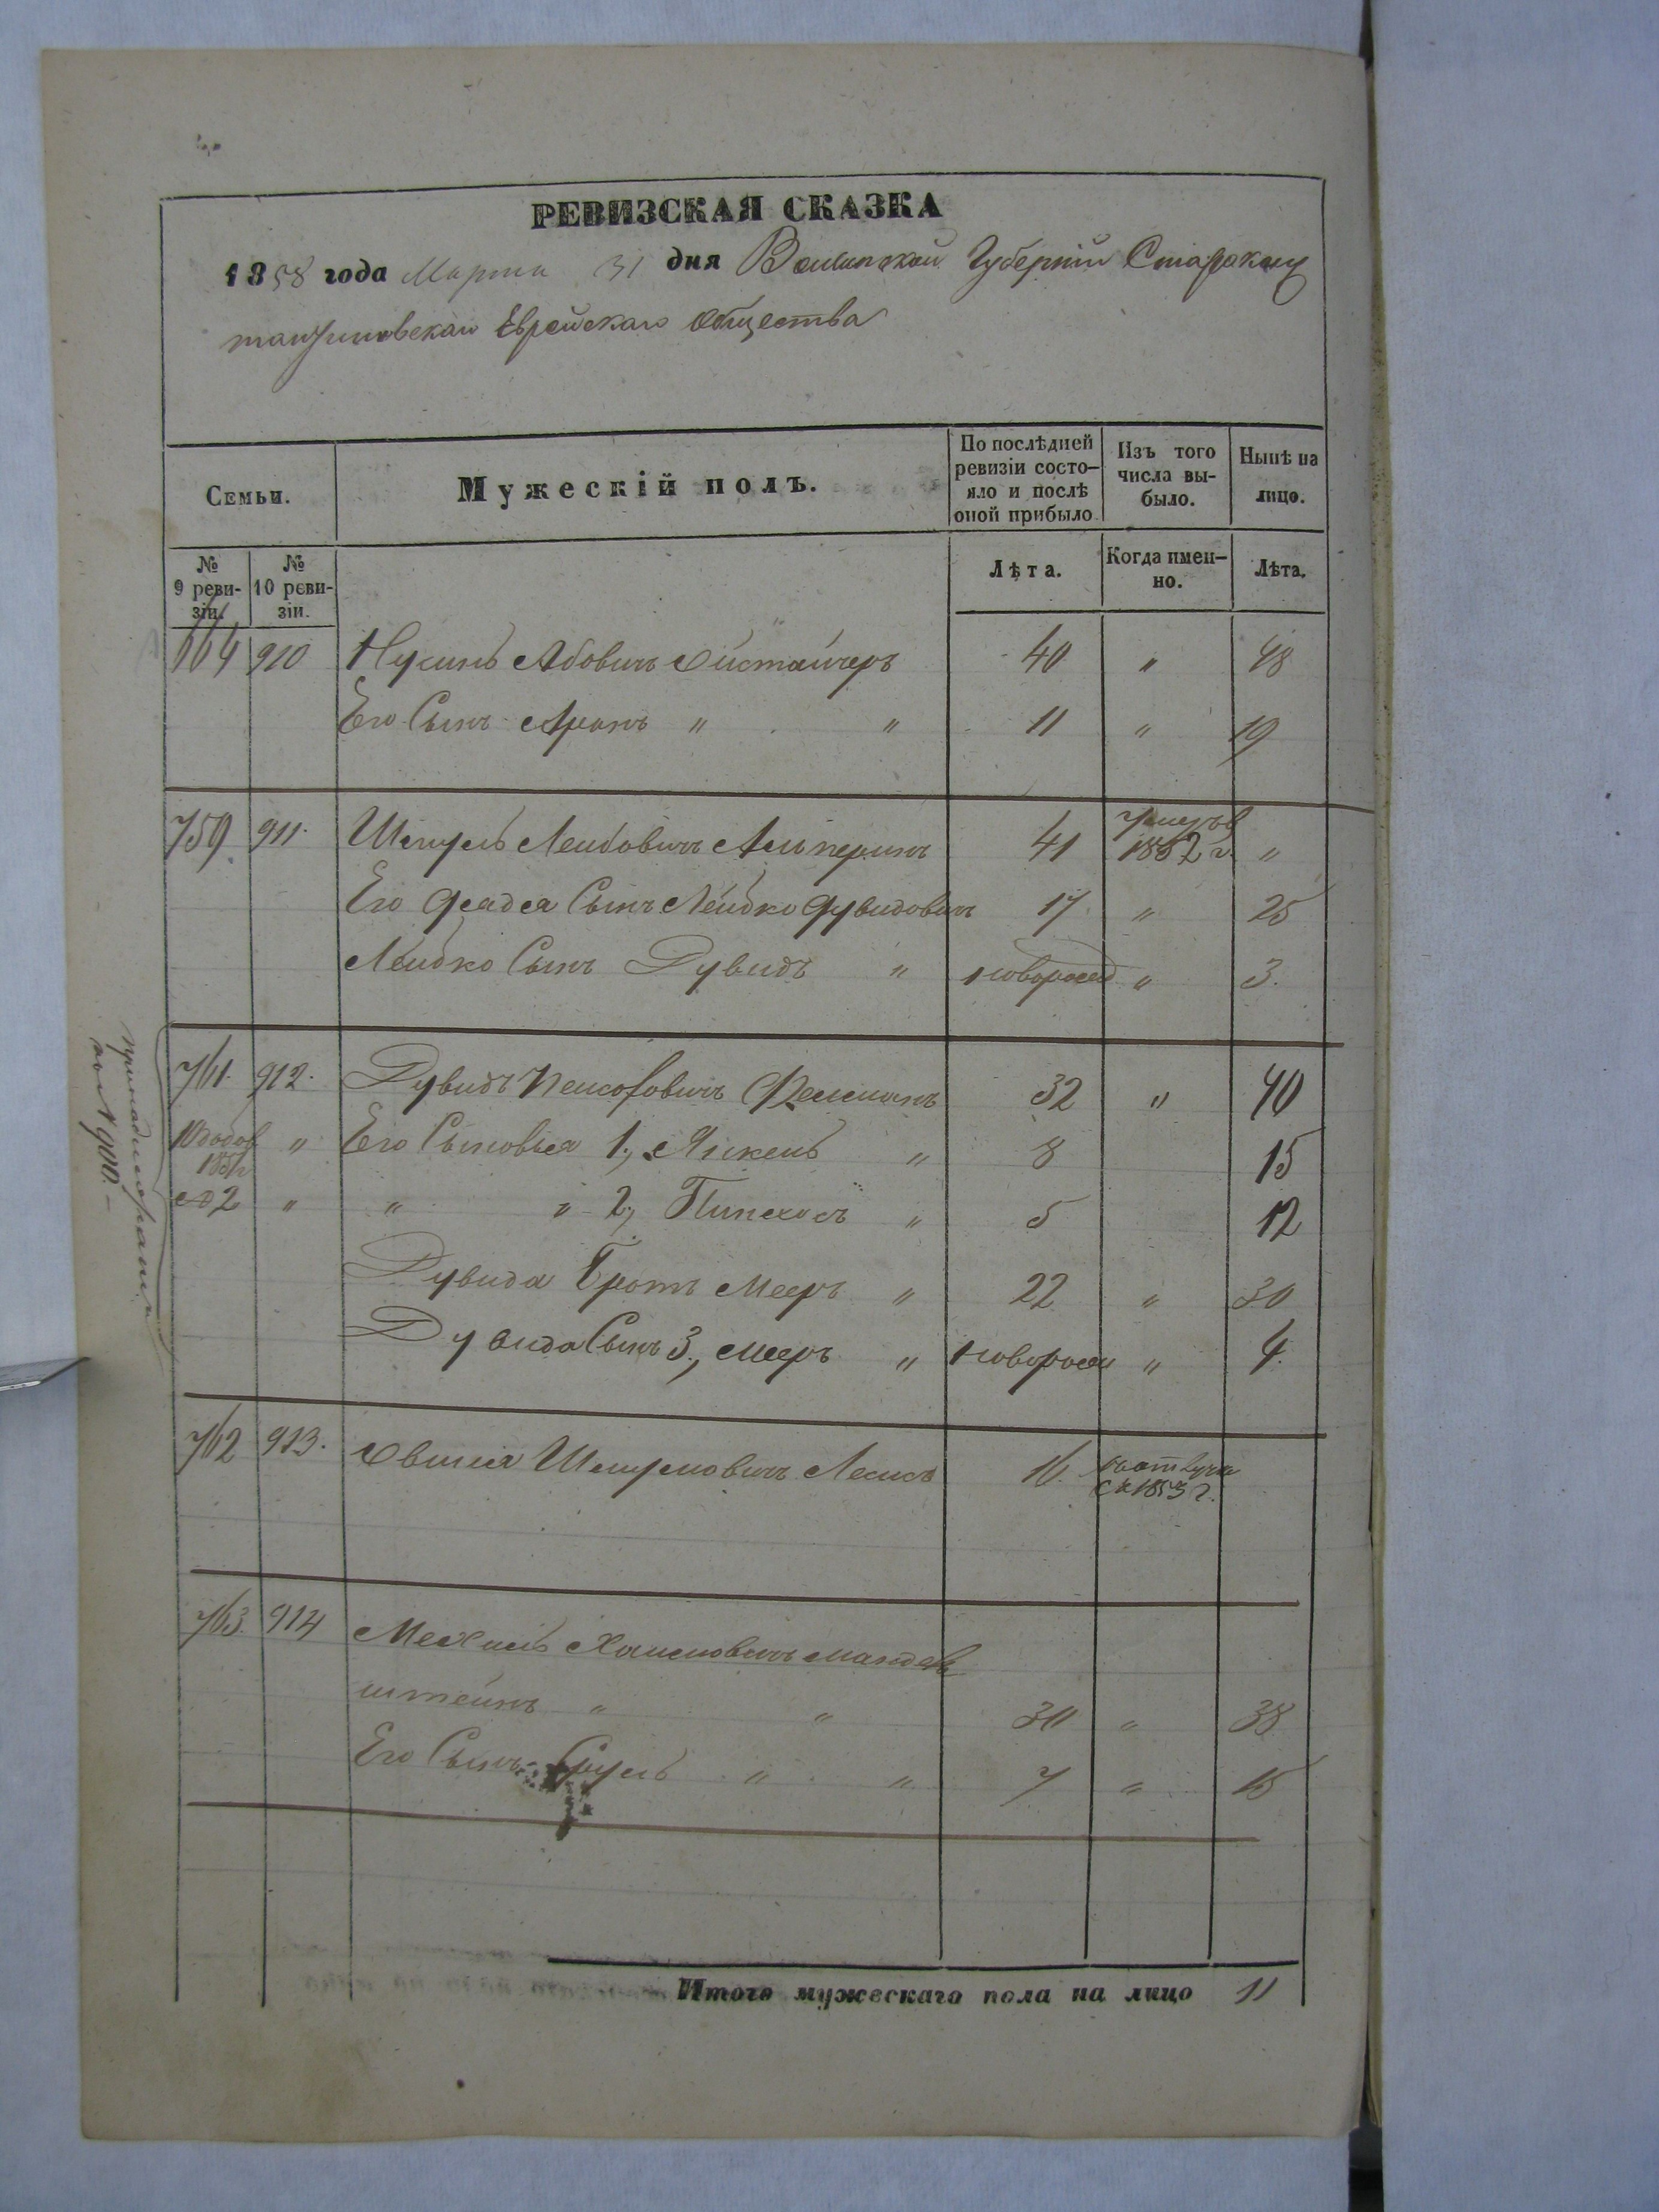 РЕВИЗСКАЯ СКАЗКА
1858 года Марта 31 дня Волынской Губерніи Староконс
тантиновскаго Еврейскаго Общества
Семьи.
Мужескій полъ.
По послѣдней ревизіи состо-яло и послѣ оной прибыло
Изъ того числа вы-было.
Нынѣ на лицо.
№ 9 реви-зіи.
№ 10 реви-зіи.
Лѣта.
Когда имен-но.
Лѣта.
664 910 Нусинъ Абовичъ Ойстайчеръ 40 " 48
Его Сынъ Аронъ " " 11 " 19
759 911. Шмуль Лейбовичъ Альперинъ 41 Умеръ в 1852 г. "
Его дяди Сынъ Лейбко Дувидовичъ 17 " 25
Лейбко Сынъ Дувидъ " новорожд " 3.
761. 912. Дувидъ Пейсоховичъ 32 " 40
1851 " Его Сыновья 1, Янкель " 8 15
2 " " " 2, Пинхосъ " 5 12
Дувида Братъ Мееръ " 22 " 30
Дувида Сынъ 3, Мееръ " новорож " 4.
№ 900.–
762 913. Овшія Шмулювичъ 16. въ отлучк съ 1853 г.
763. 914 Мехель Хаимовичъ Мандель
штейнъ " " 30 " 38
Его Сынъ Сруль " " 7 " 15
Итого мужескаго пола на лицо 11